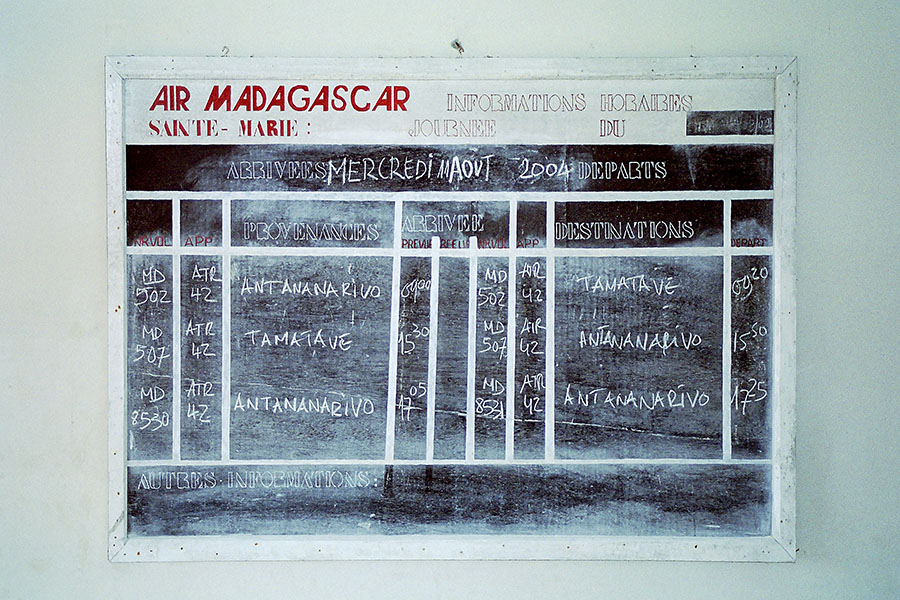 AIR MADAGASCAR INFORMATIONS HORAIRES
SAINTE-MARIE: JOURNEE DU
ARRIVEES MERCREDI 11 AOUT 2004 DEPARTS
NRVOL APP PROVENANCES ARRIVEE DESTINATIONS
PREVUE REELLE NRVOL APP DEPART
MD 502 ATR 42 ANTANANARIVO 0900 MD 502 ATR 42 TAMATAVE 0920
MD 507 ATR 42 TAMATAVE 1530 MD 507 AIR 42 ANTANANARIVO 1550
MD 8530 ATR 42 ANTANANARIVO 1705 MD 8531 ATR 42 ANTANANARIVO 1725
AUTRES-INFORMATIONS: